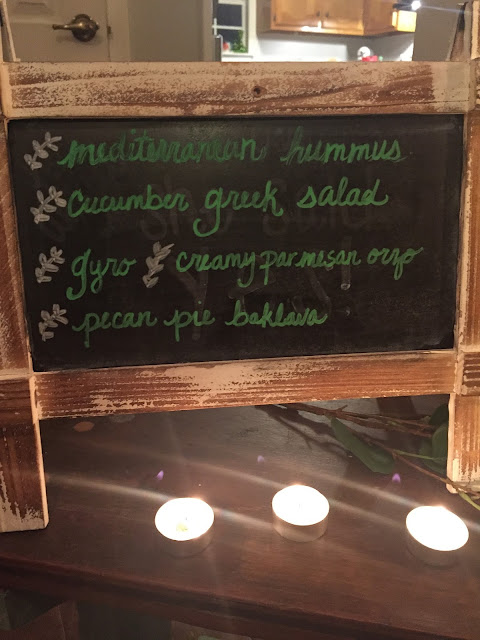 mediterranean hummus
cucumber greek salad
gyro creamy parmesan orzo
pecan pie baklava